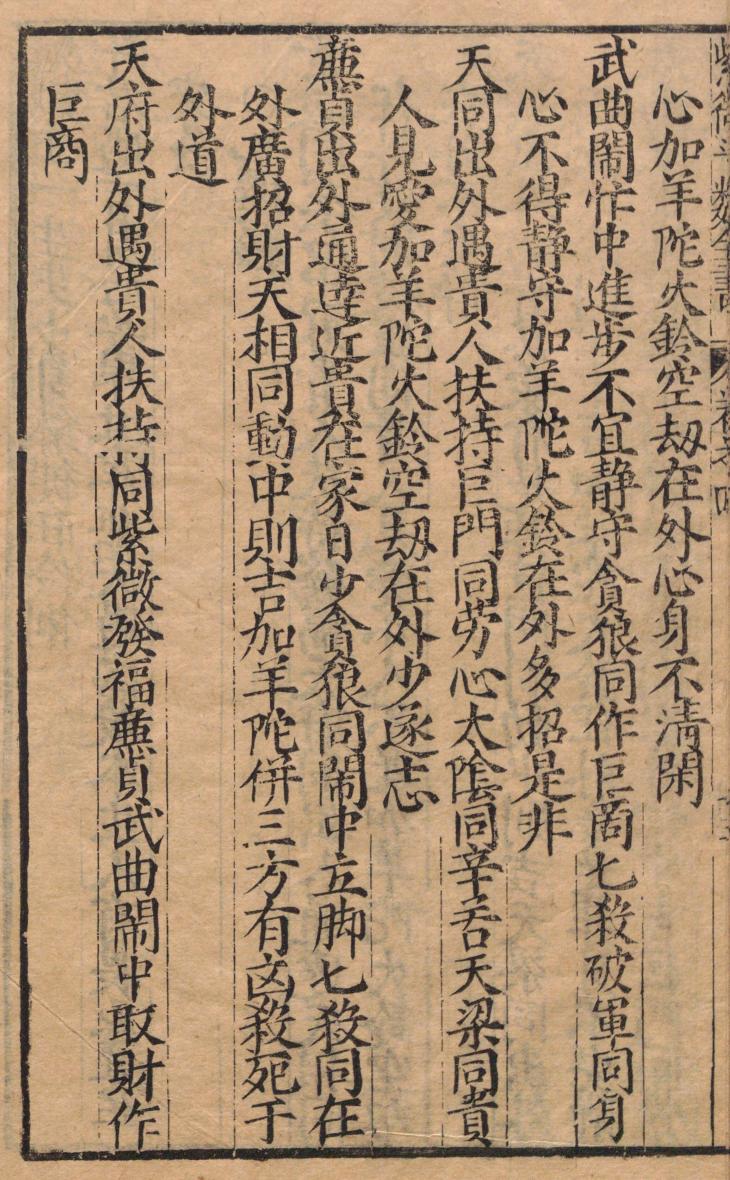 心加羊陀火鈴空劫在外心身不清閑
武曲鬧忙中進步不宜静守貪狼同作巨啇七殺破軍同身
心不得静守加羊陀火鈴在外多招是非
天同出外遇貴人扶持巨門同劳心太陰同辛苦天梁同貴
人見愛加羊陀火鈴空劫在外少遂志
㢘貞出外通逹近貴在家日少貪狼同鬧中立脚七殺同在
外廣招財天相同動中則吉加羊陀併三方有㐫殺死于
外道
天府出外遇貴人扶持同紫微發福㢘貞武曲鬧中取財作
巨商